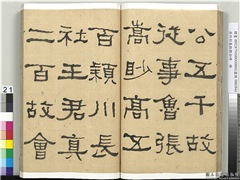 公五千故
從事魯張
嵩眇高五
百穎川長
社王君真
二百故會
21